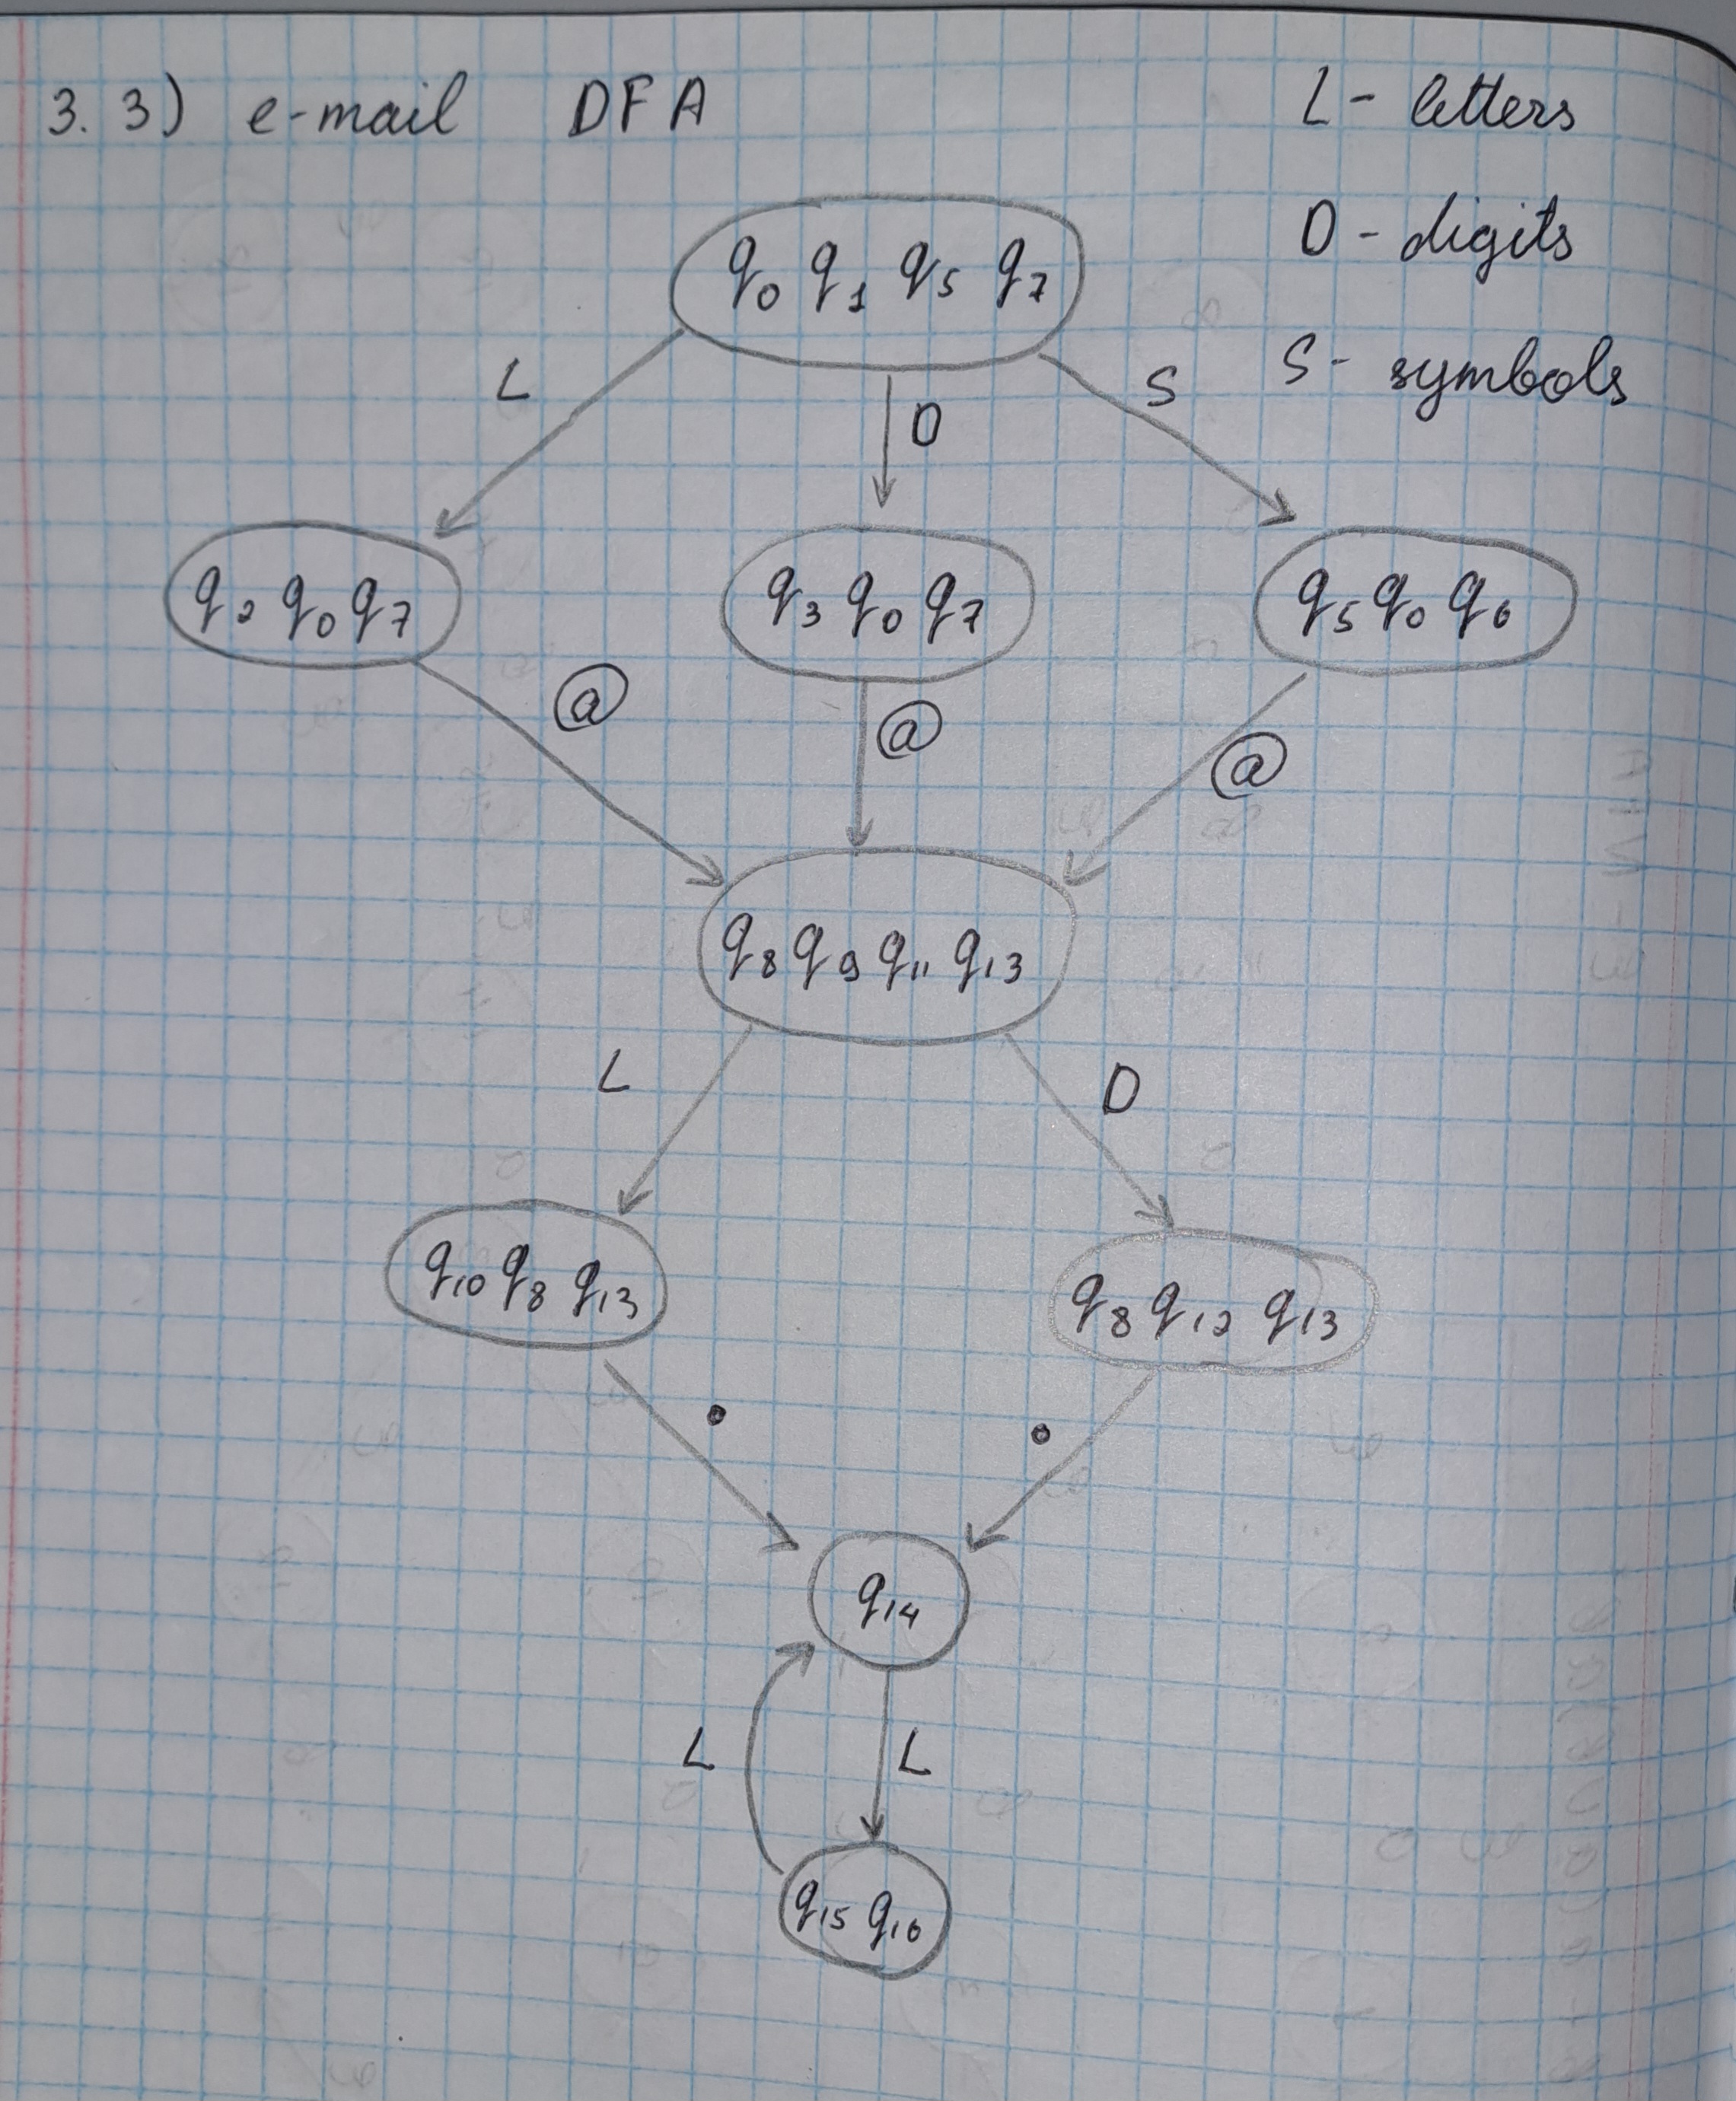 3. 3) e-mail DFA
L - letters
D - digits
S - symbols
q0 q1 q5 q7
L
D
S
q2 q0 q7
q3 q0 q7
q5 q0 q6
@
@
@
q8 q9 q11 q13
L
D
q10 q8 q13
q8 q12 q13
.
.
q14
L
L
q15 q16